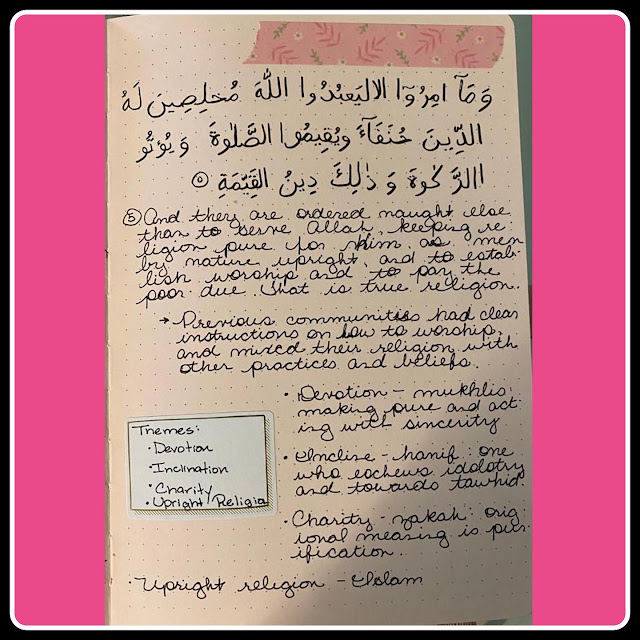 وَمَآ امِرُوٓا الاليَعبُدُوا اللّٰهَ مُخلِصِينَ لَهُ
الدِّينَ حُنَفَآءَ ويُقِيمُوا الصَّلٰوةَ وَيُوتُو
االزَّكٰوةَ وَ ذٰلِكَ دِينُ القَيِّمَةِ ٥
⑤ And they are ordered naught else
than to serve Allah, keeping re-
ligion pure for Him as men
by nature upright, and to estab-
lish worship and to pay the
poor due. That is true religion.
→ Previous communities had clear
instructions on how to worship,
and mixed their religion with
other practices and beliefs.
• Devotion - mukhlis:
making pure and act-
ing with sincerity
Themes:
• Devotion
• Inclination
• Charity
• Upright Religio
• Incline - hanif: one
who eschews idolatry
and towards tawhid.
• Charity - zakah: orig-
ional meaning is pur-
ification.
• Upright religion - Islam